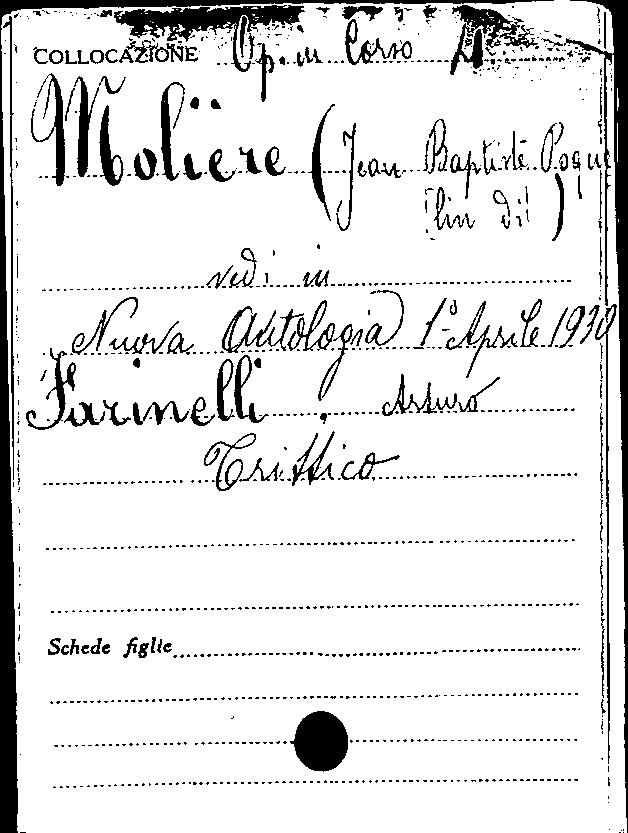 COLLOCAZIONE Op. in Corso 4
Molière (Jean Baptiste Poque
lin dit)
vedi in
Nuova Antologia 1° Aprile 1930
Farinelli, Arturo
Trittico
Schede figlie